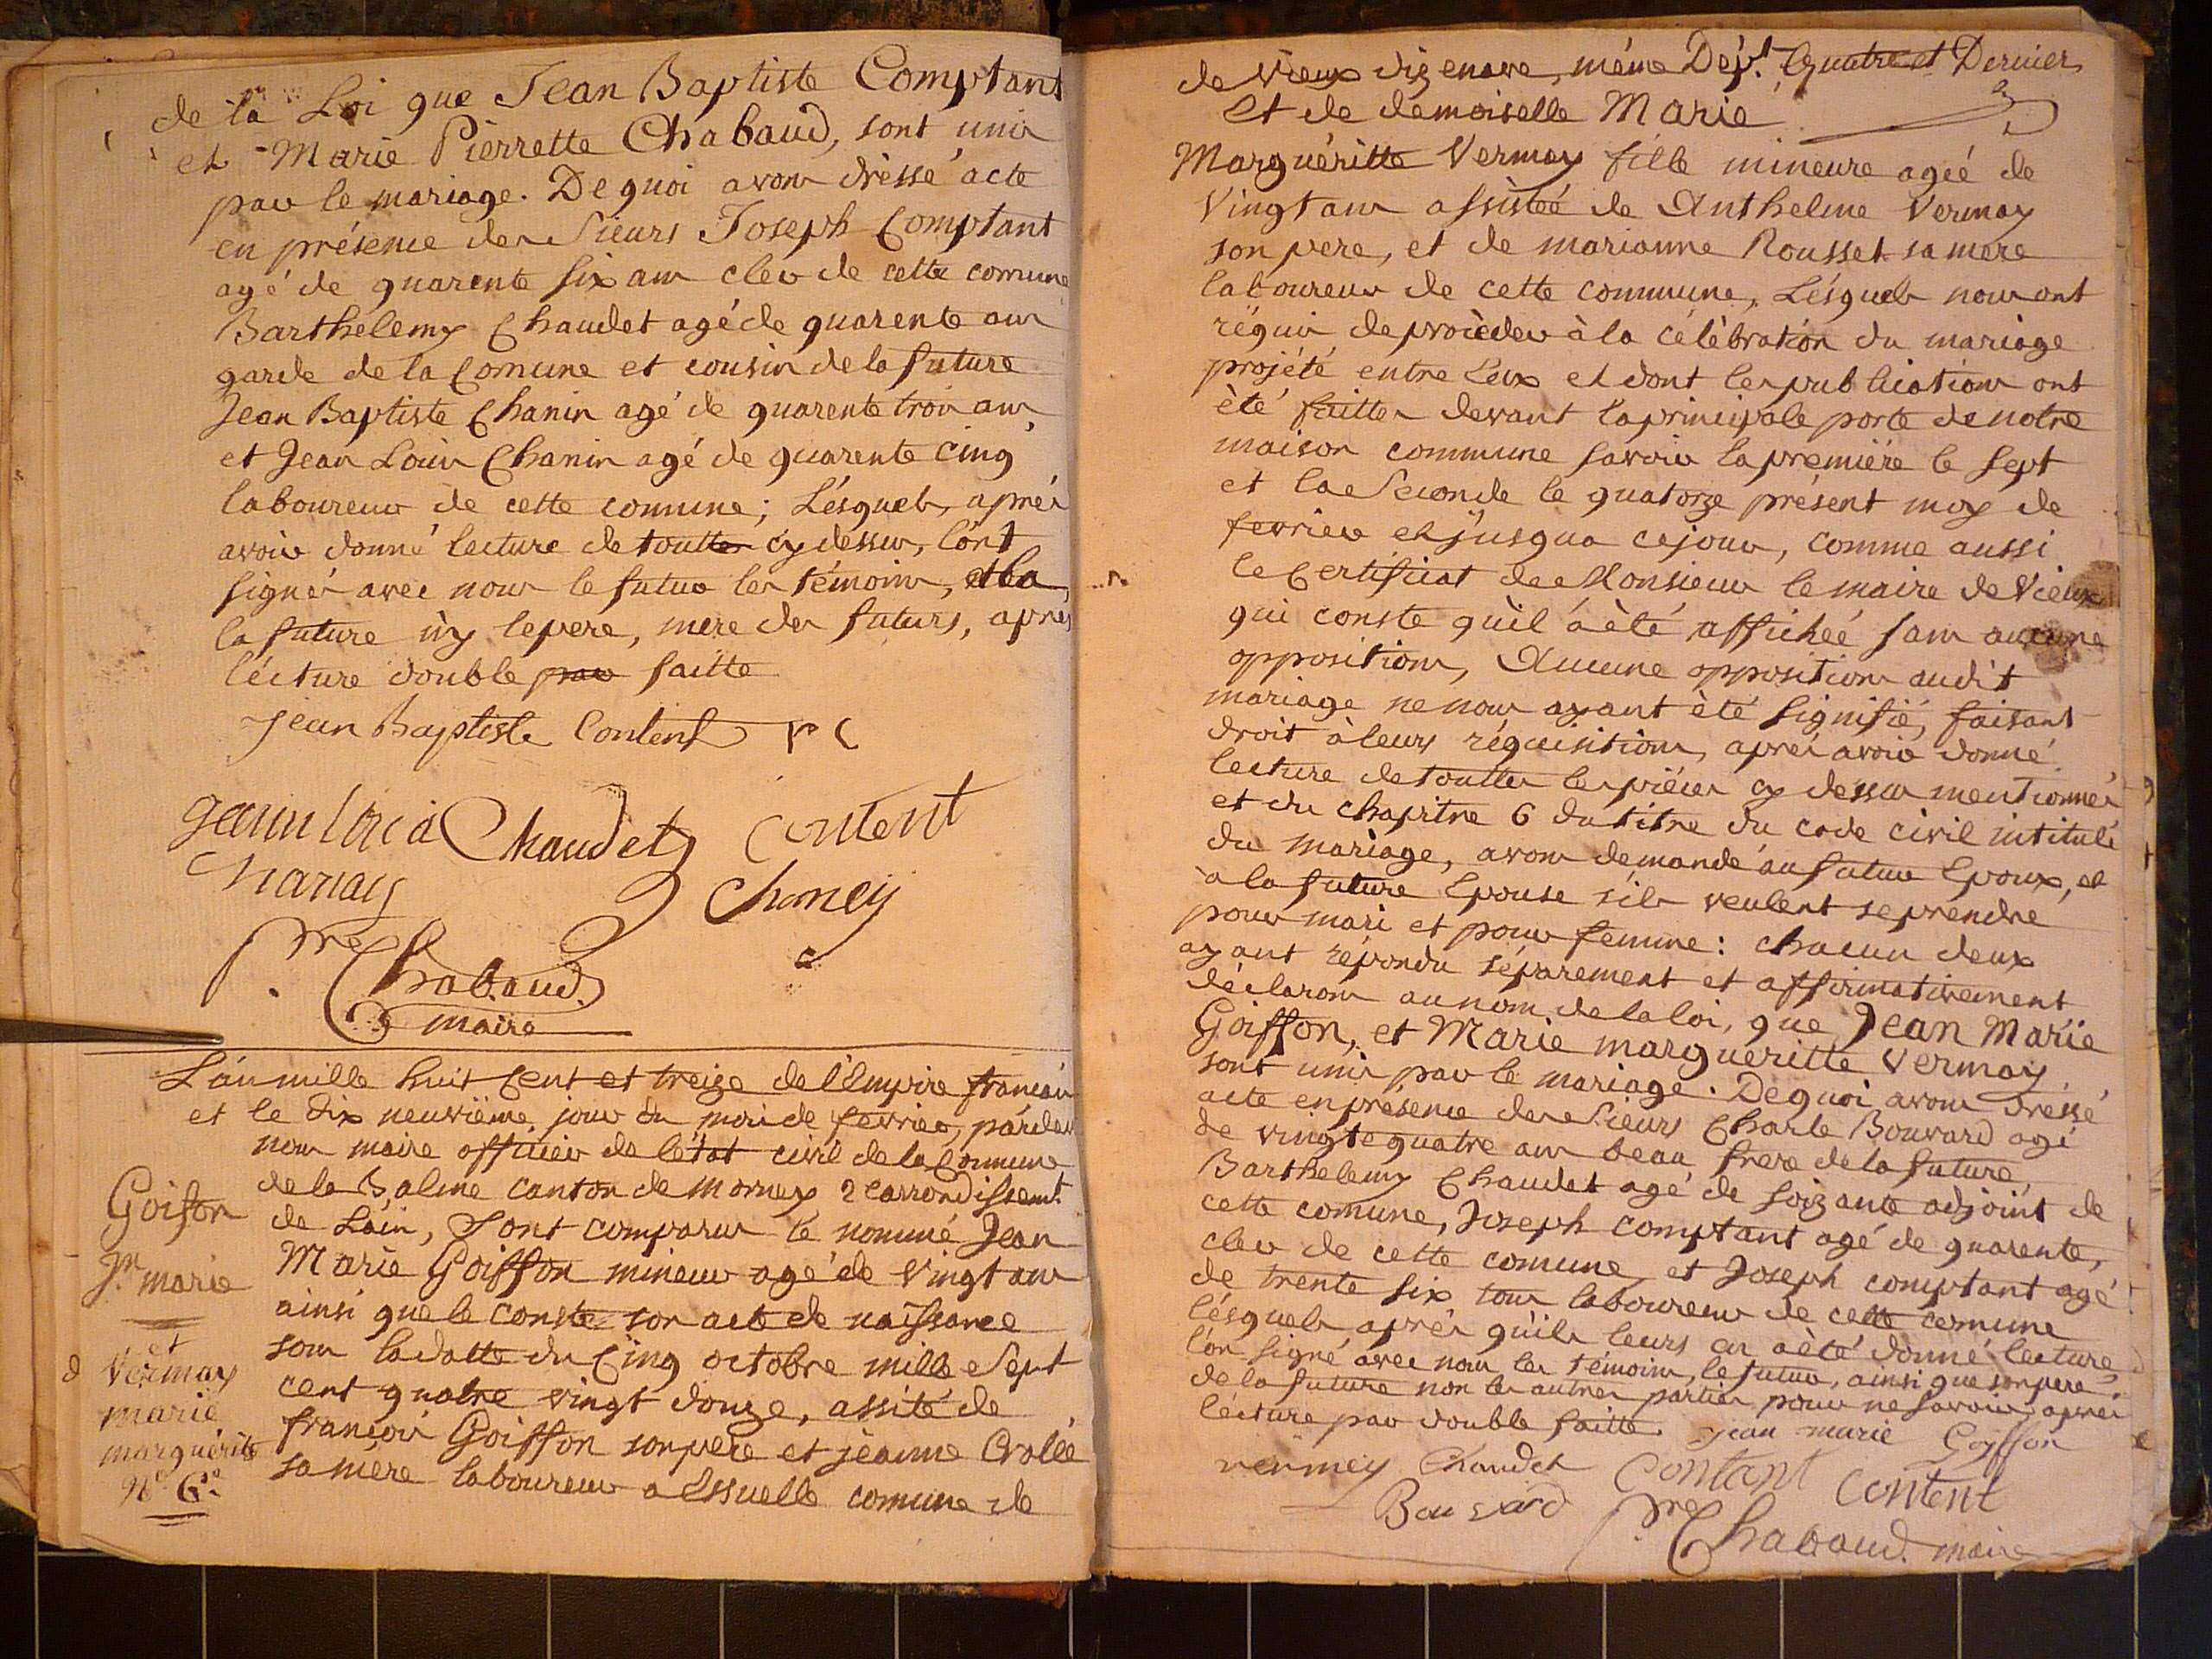 de la Loi que Jean Baptiste Comptant
et Marie Pierrette Chabaud, sont unis
par le mariage. De quoi avons dréssé acte
en présence des Sieurs Joseph Comptant
agé de quarente six ans clev de cette comune
Barthélemy Chaudet agé de quarente ans
garde de la Comune et cousin de la future
Jean Baptiste Chanin agé de quarente trois ans
et Jean Louis Chanin agé de quarente cinq
laboureurs de cette comune; Lésquels, aprés
avoir donné lecture de touttes cy dessus, l'ont
signés avec nous le futur les témoins, et la
la future n'y le pere, mere des futurs, apres
lécture double par faitte
Jean Baptiste Content
Chaudet Content
Pre Chabaud
maire
L'an mille huit cent et treize de l'Empire francais
et le dix neuvième jour du mois de fevrier, pardevt
nous maire officier de létat civil de la Commune
de la Balme canton de mornex 2e arrondissemt
de Láin, Sont comparus le nommé Jean
Marie Goiffon mineur agé de Vingt ans
ainsi que le conste son acte de naissance
sous la datte du Cinq octobre mille Sept
cent quatre vingt douze, assité de
françois Goiffon son pere et jeanne Crolle
sa mère laboureurs a Essuelle comune de
Goiffon
Jn marie
et
Vermay
marie
marguérite
No 6e
de Vieux dizenave, même Dépt. Quatre et Dernier
et de demoiselle Marie
Marguéritte Vermay fille mineure ageé de
Vingt ans assisteé de Anthelme Vermay
son pere, et de marianne Rousset sa mere
laboureurs de cette commune, Lésquels nous ont
réquis de procèder à la célèbration du mariage
projété entre Eux et dont les publications ont
èté faittes devant la principale porte de notre
maison commune savoir la premiére le Sept
et la Seconde le quatorze présent moy de
fevrier et jusqua ce jour, comme aussi
le Certificat de Monsieur le maire de Vieux
qui conste quìl à èté affichéé sans aucune
oppositions, Aucune opposition audit
mariage ne nous ayant èté signifié, faisant
droit à leurs réquisitions, aprés avoir donné
lecture de touttes les piéces cy dessus mentionnés
et du chapitre 6 du titre du code civil intitulé
du mariage, avons demandé au futur Epoux, et
à la future Epouse s'ils veulent se prendre
pour mari et pour femme: chacun deux
ayant répondu séparement et affirmativement
déclarons au nom de la loi, que Jean Marie
Goiffon, et Marie marguéritte Vermay
sont unis par le mariage. De quoi avons dréssé
acte en présence des Sieurs Charle Bouvard agé
de vingt e quatre ans beau frere de la future,
Barthelemy Chaudet agé de soizante adjoint de
cette comune, Joseph comptant agé de quarente,
clev de cette comune, et Joseph comptant agé
de trente six tous laboureurs de cette comune
lésquels aprés quils leurs en a èté donné lecture
l'on signé avec nous les témoins, le futur, ainsi que son pere
de la future non les autres parties pour ne savoir, aprés
lécture par double faitte. jean marie Goyffon
vermey Chaudet Contant Content
Bouvard Pre Chabaud. maire